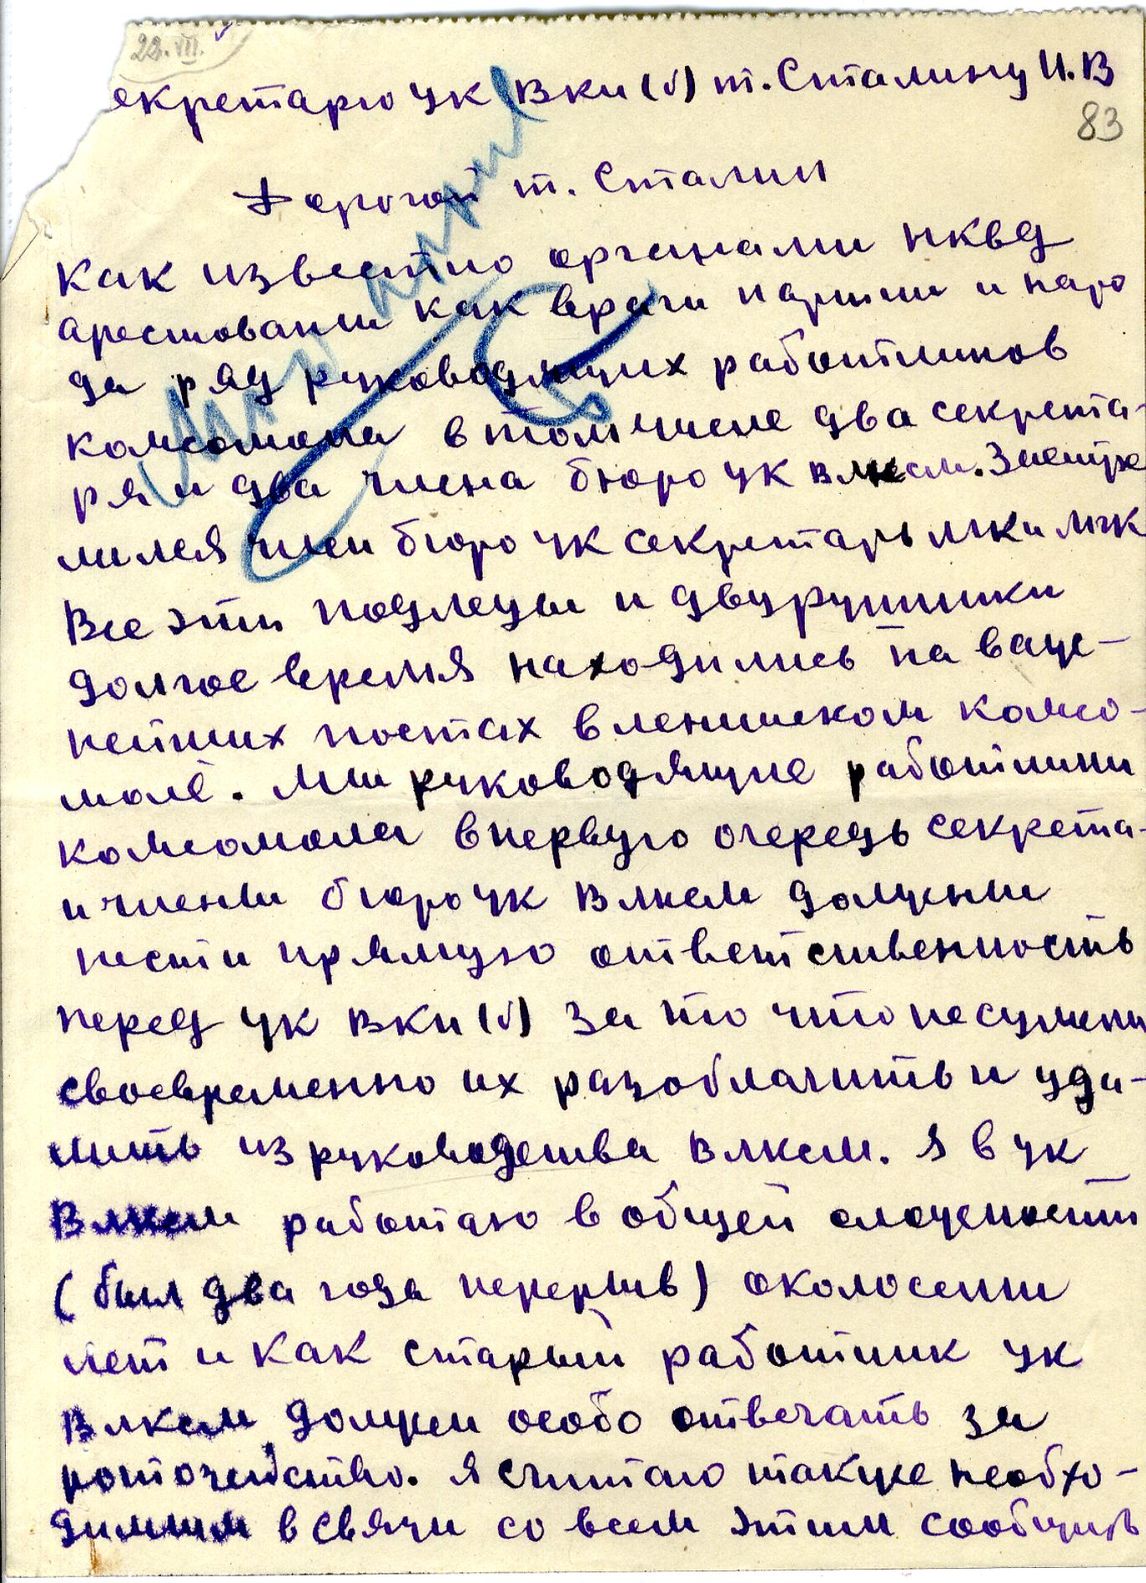 22.VII.
екретарю ЦК ВКП(б) т. Сталину И.В
83
Дорогой т. Сталин
Как известно органами НКВД
арестованы как враги партии и наро
да ряд руководящих работников
комсомола в том числе два секрета-
ря и два члена бюро ЦК ВЛКСМ. Застре
лился член бюро ЦК секретарь МК и МГК
Все эти подлецы и двурушники
долгое время находились на важ-
нейших постах в ленинском комсо-
моле. Мы руководящие работники
комсомола в первую очередь секрета-
и члены бюро ЦК ВЛКСМ должны
нести прямую ответственность
перед ЦК ВКП(б) за то что не сумели
своевременно их разоблачить и уда-
лить из руководства ВЛКСМ. Я в ЦК
ВЛКСМ работаю в общей сложности
(был два года перерыв) около семи
лет и как старый работник ЦК
ВЛКСМ должен особо отвечать за
ротозейство. Я считаю также необхо-
димым в связи со всем этим сообщить